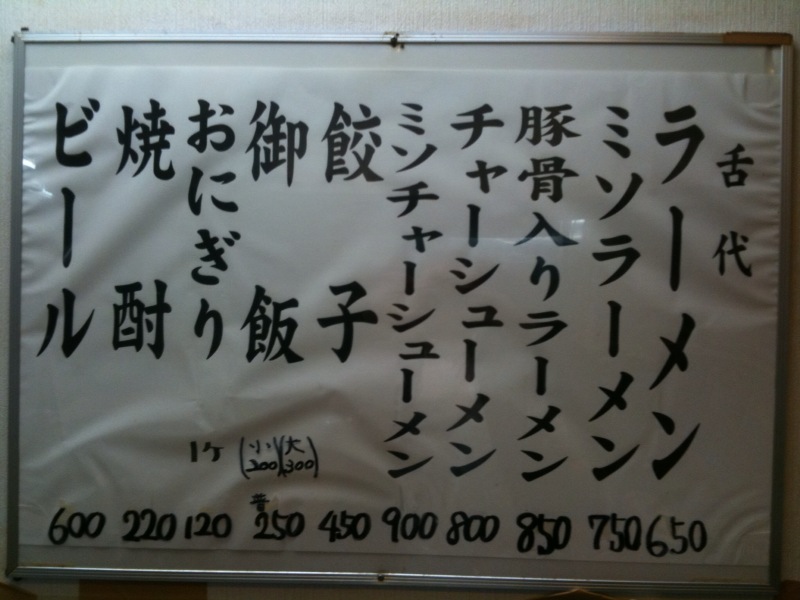 舌代
ラーメン 650
ミソラーメン 750
豚骨入りラーメン 850
チャーシューメン 800
ミソチャーシューメン 900
餃子 450
御飯 (小200)(大300) 普250
おにぎり 1ケ 120
焼酎 220
ビール 600